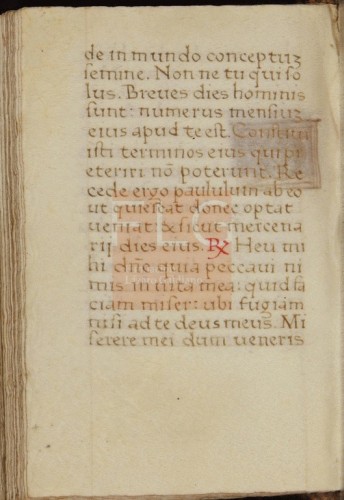 de in mundo conceptuʒ
semine. Non ne tu qui so
lus. Breues dies hominis
sunt: numerus mensiuʒ
eius apud te est. Constitu
isti terminos eius qui pr
eteriri nō poterunt. Re
cede ergo paululum ab eo
ut quiescat donec optat
ueniat & sicut mercena
rij dies eius. ℞ Heu mi
hi dñe quia peccaui ni
mis in uita mea: quid fa
ciam miser: ubi fugiam
nisi ad te deus meus. Mi
serere mei dum ueneris